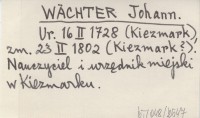 WÄCHTER Johann.
Ur. 16 II 1728 (Kiezmark),
zm. 23 II 1802 (Kiezmark?).
Nauczyciel i urzędnik miejski
w Kiezmarku.